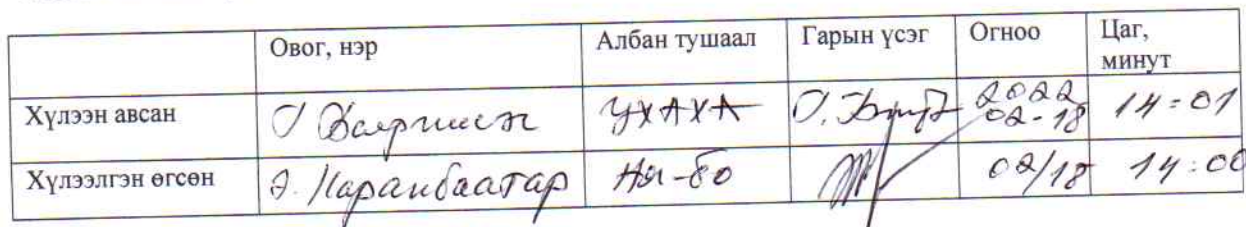 Овог, нэр Албан тушаал Гарын үсэг Огноо Цаг, минут
Хүлээн авсан УХАХА 2022 02-18 14:01
Хүлээлгэн өгсөн Э. Наранбаатар Ня-бо 02/18 14:00